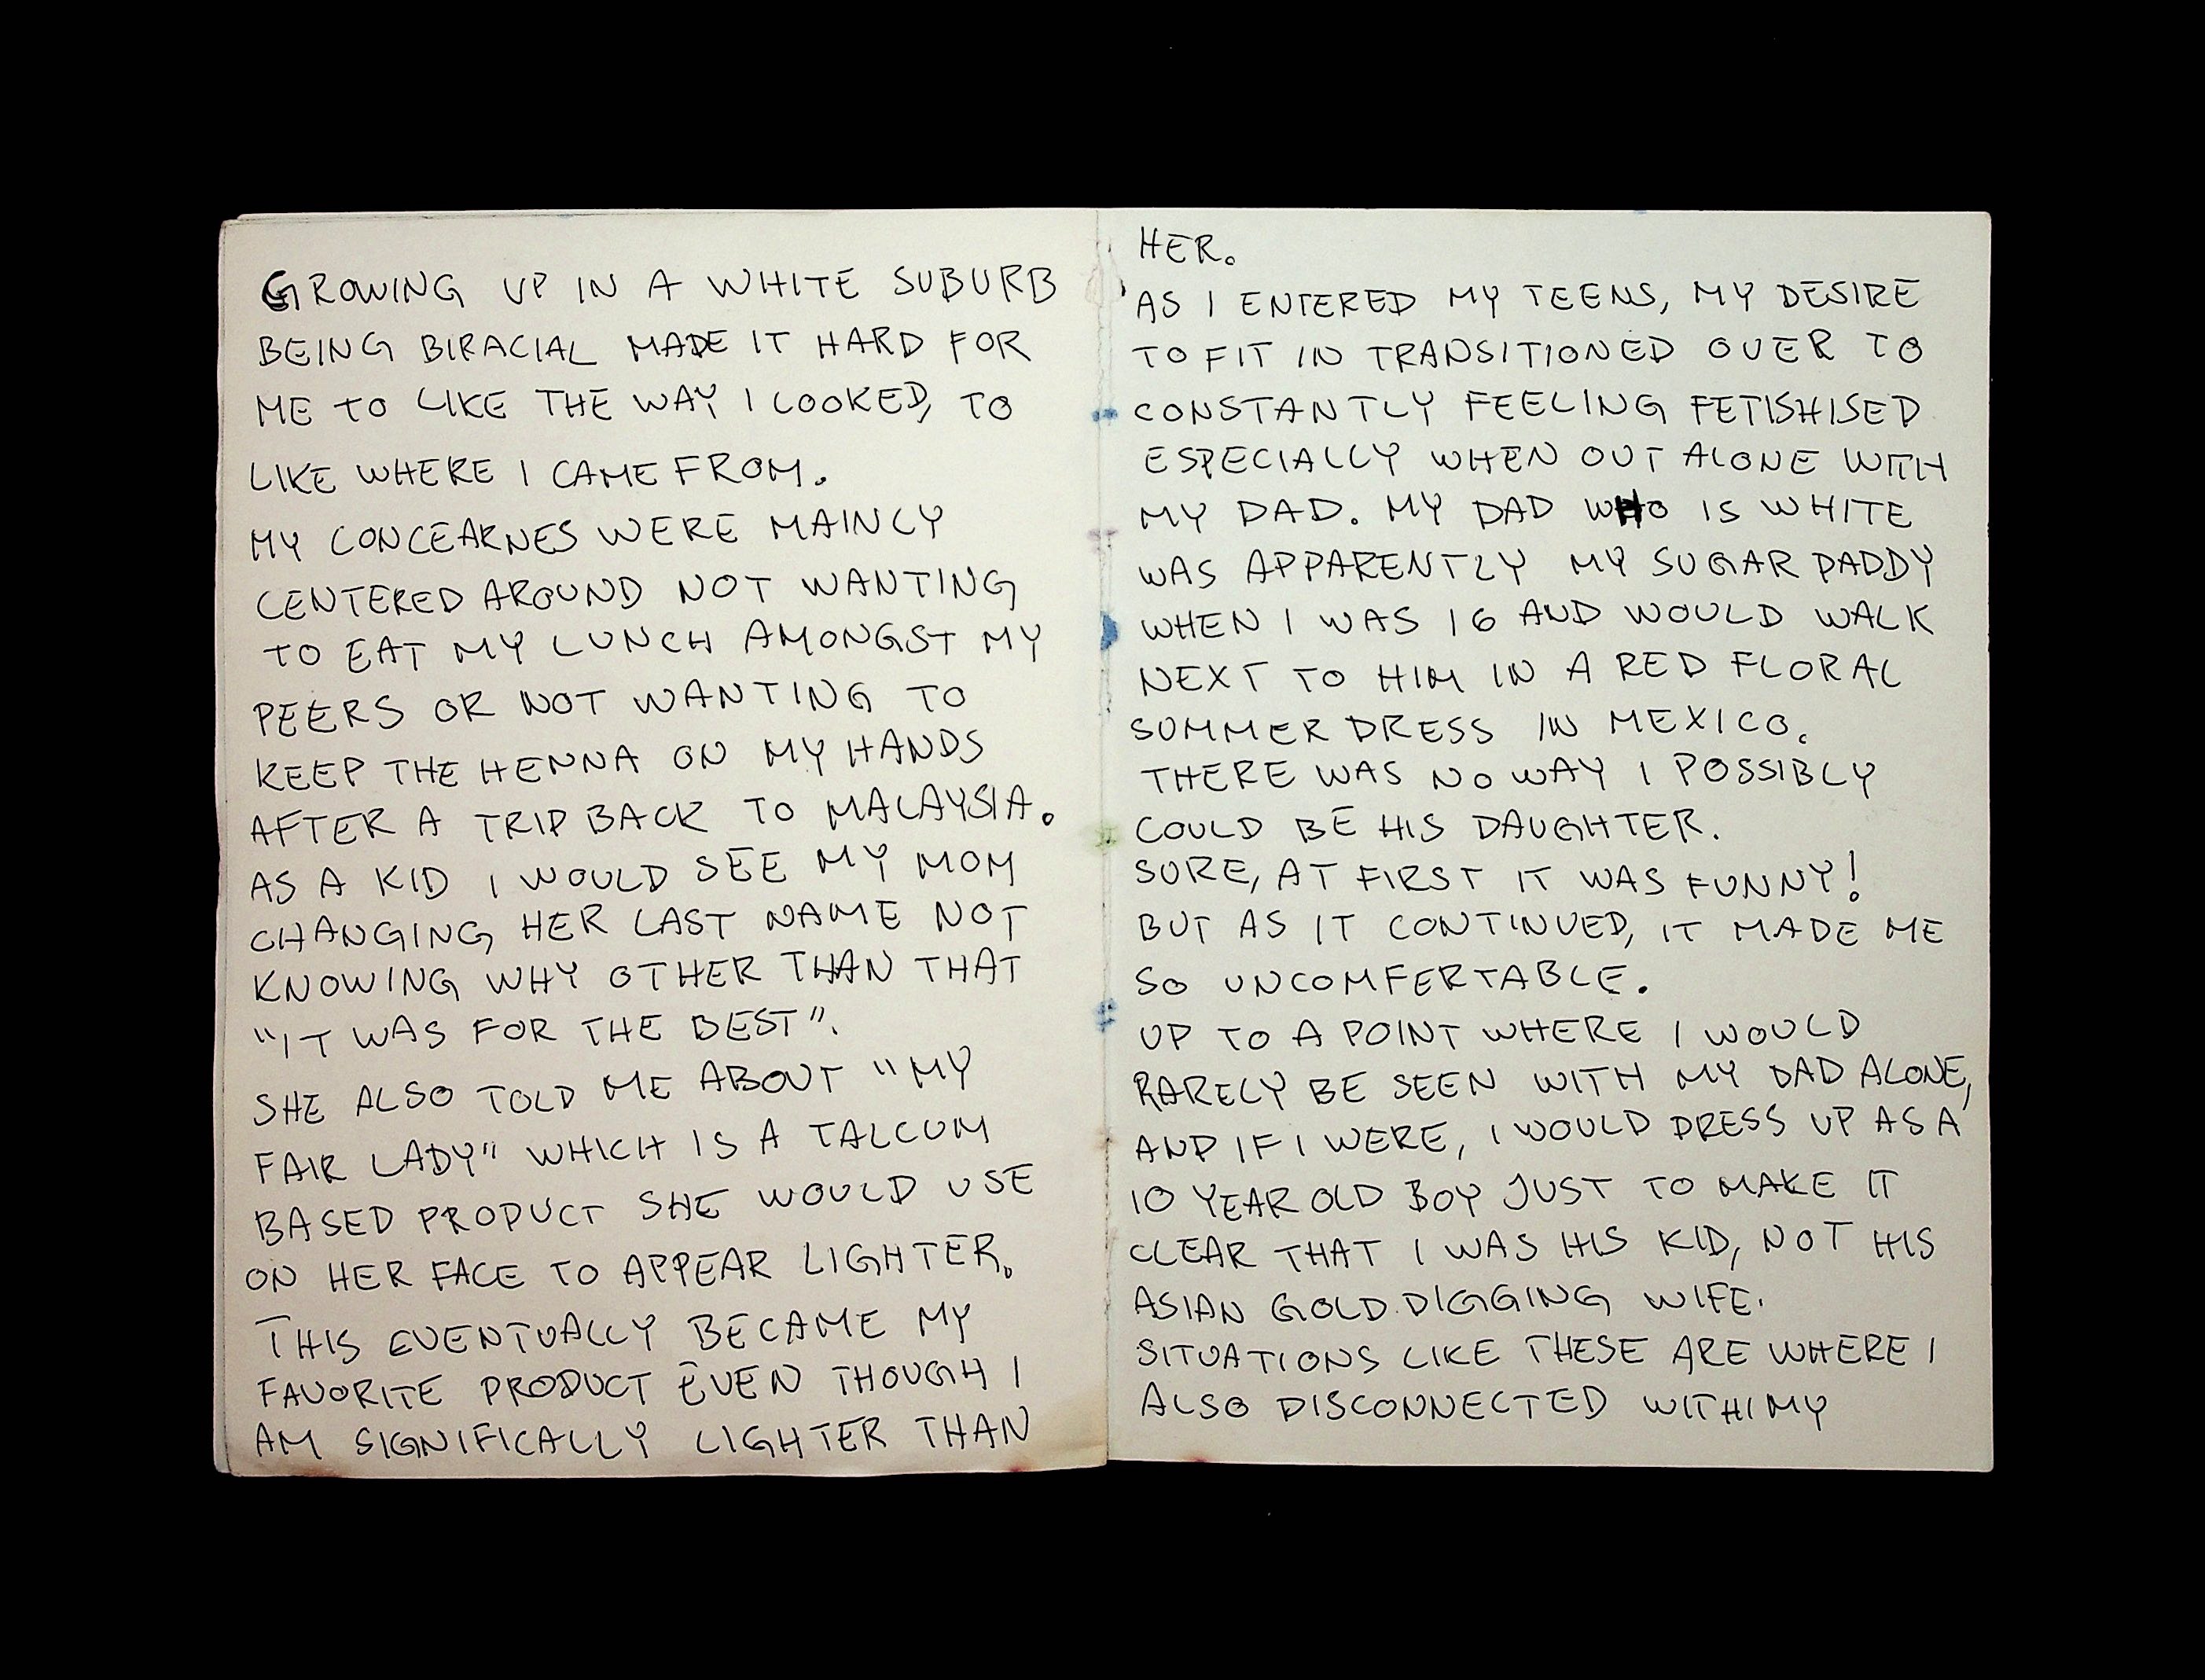 GROWING UP IN A WHITE SUBURB
BEING BIRACIAL MADE IT HARD FOR
ME TO LIKE THE WAY I LOOKED, TO
LIKE WHERE I CAME FROM.
MY CONCEARNES WERE MAINLY
CENTERED AROUND NOT WANTING
TO EAT MY LUNCH AMONGST MY
PEERS OR NOT WANTING TO
KEEP THE HENNA ON MY HANDS
AFTER A TRIP BACK TO MALAYSIA.
AS A KID I WOULD SEE MY MOM
CHANGING HER LAST NAME NOT
KNOWING WHY OTHER THAN THAT
"IT WAS FOR THE BEST".
SHE ALSO TOLD ME ABOUT "MY
FAIR LADY" WHICH IS A TALCUM
BASED PRODUCT SHE WOULD USE
ON HER FACE TO APPEAR LIGHTER.
THIS EVENTUALLY BECAME MY
FAVORITE PRODUCT EVEN THOUGH I
AM SIGNIFICALLY LIGHTER THAN
HER.
AS I ENTERED MY TEENS, MY DESIRE
TO FIT IN TRANSITIONED OVER TO
CONSTANTLY FEELING FETISHISED
ESPECIALLY WHEN OUT ALONE WITH
MY DAD. MY DAD WHO IS WHITE
WAS APPARENTLY MY SUGAR DADDY
WHEN I WAS 16 AND WOULD WALK
NEXT TO HIM IN A RED FLORAL
SUMMER DRESS IN MEXICO.
THERE WAS NO WAY I POSSIBLY
COULD BE HIS DAUGHTER.
SURE, AT FIRST IT WAS FUNNY!
BUT AS IT CONTINUED, IT MADE ME
SO UNCOMFERTABLE.
UP TO A POINT WHERE I WOULD
RARELY BE SEEN WITH MY DAD ALONE,
AND IF I WERE, I WOULD DRESS UP AS A
10 YEAR OLD BOY JUST TO MAKE IT
CLEAR THAT I WAS HIS KID, NOT HIS
ASIAN GOLD DIGGING WIFE.
SITUATIONS LIKE THESE ARE WHERE I
ALSO DISCONNECTED WITH MY